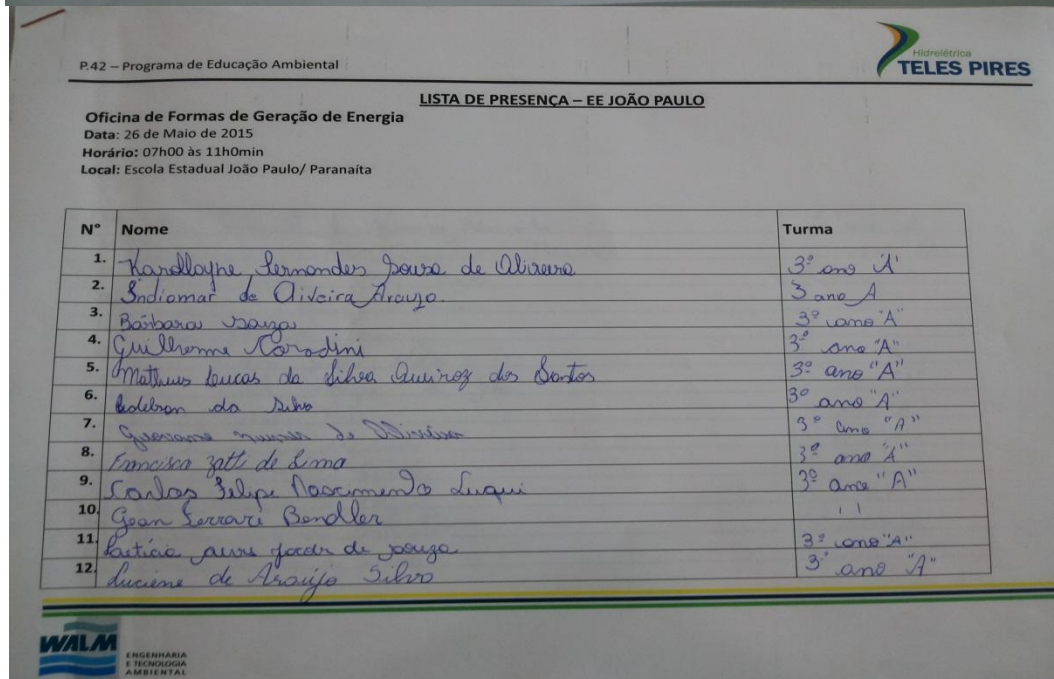 P.42 – Programa de Educação Ambiental
Hidrelétrica
TELES PIRES
LISTA DE PRESENÇA – EE JOÃO PAULO
Oficina de Formas de Geração de Energia
Data: 26 de Maio de 2015
Horário: 07h00 às 11h0min
Local: Escola Estadual João Paulo/ Paranaíta
N° Nome Turma
1. Karollayne Fernandes Souza de Oliveira 3º ano "A"
2. Indiomar de Oliveira Araujo. 3 ano A
3. Bárbara Souza 3º ano "A"
4. Guilherme 3º ano "A"
5. Matheus Lucas da Silva Queiroz dos Santos 3º ano "A"
6. da Silva 3º ano "A"
7. de Oliveira 3º ano "A"
8. Francisca Zatti de Lima 3º ano "A"
9. Carlos Felipe Nascimento Luqui 3º ano "A"
10. Gean Ferrari Bendler " "
11. Laeticia de Souza 3º ano "A"
12. Luciene de Araújo Silva 3º ano "A"
WALM
ENGENHARIA
E TECNOLOGIA
AMBIENTAL